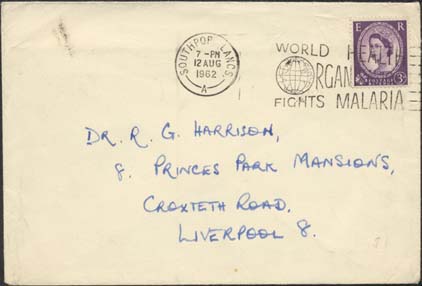 E R
SOUTHPOR LANCS.
7 - PM
12 AUG
1962
A
WORLD HEALT
ORGAN
FIGHTS MALARIA
3D
DR. R. G. HARRISON,
8. PRINCES PARK MANSIONS,
CROXTETH ROAD,
LIVERPOOL 8.